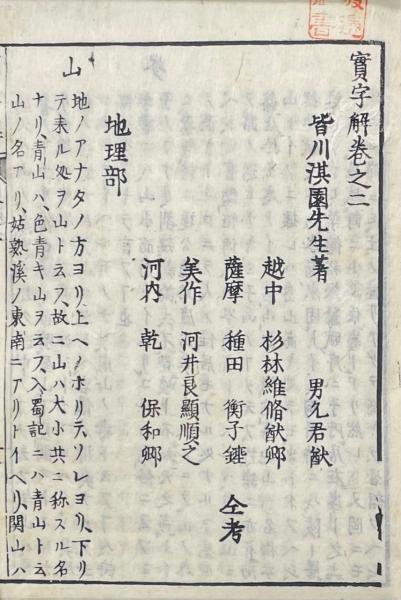 實字解卷之二
皆川淇園先生著
男允君猷
越中 杉林維脩猷卿
薩摩 種田 衡子銼
美作 河井良顯順之
河内 乾 保和卿
仝考
地理部
山
地ノアナタノ方ヨリ上ヘノホリテソレヨリ下リ
テ来ル処ヲ山ト云フ、故ニ山ハ大小共ニ称スル名
ナリ、青山ハ、色青キ山ヲ云フ、入蜀記ニハ青山ト云
山ノ名アリ、姑熟溪ノ東南ニアリトイヘリ、関山ハ